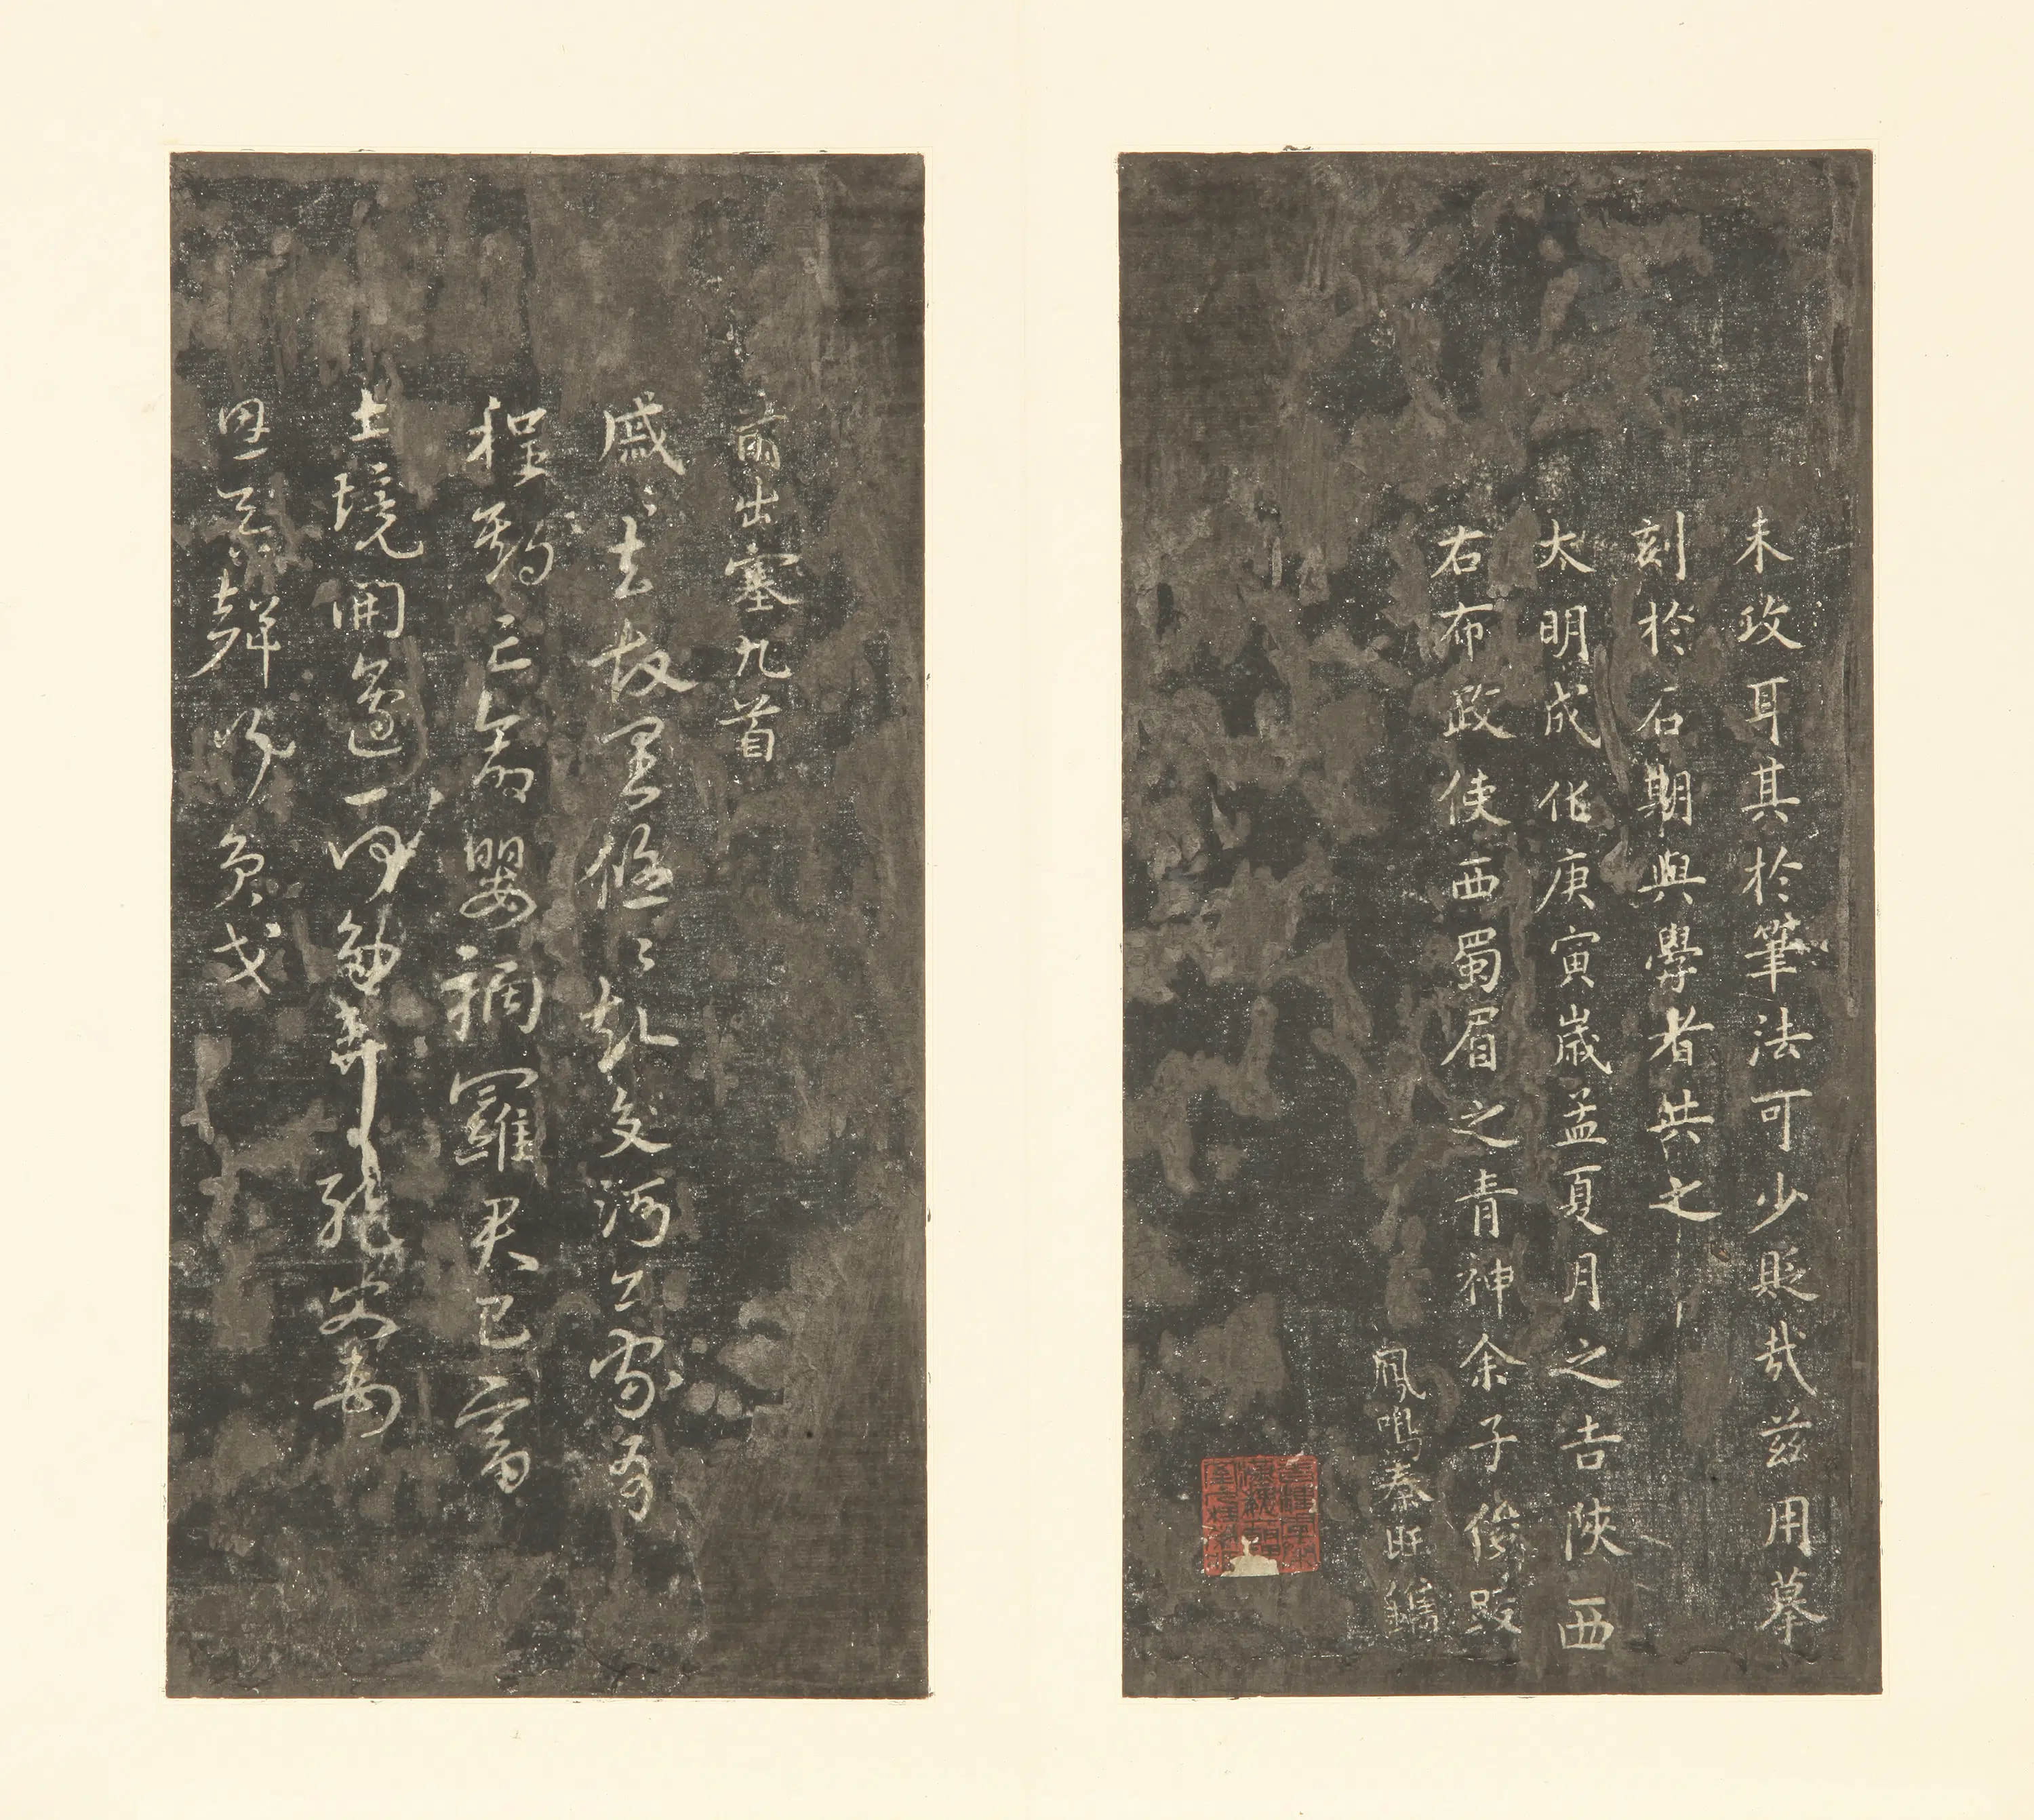 未政耳其於筆法可少貶哉茲用摹
刻於石期與學者共之
大明成化庚寅歲孟夏月之吉陝西
右布政使西蜀眉之青神余子俊跋
鳳鳴秦旺鐫
前出塞九首
戚〻去故里悠〻赴交河公家有
程期亡命嬰禍羅君已富
土境開邊一何多棄絕父母
恩吞聲行負戈